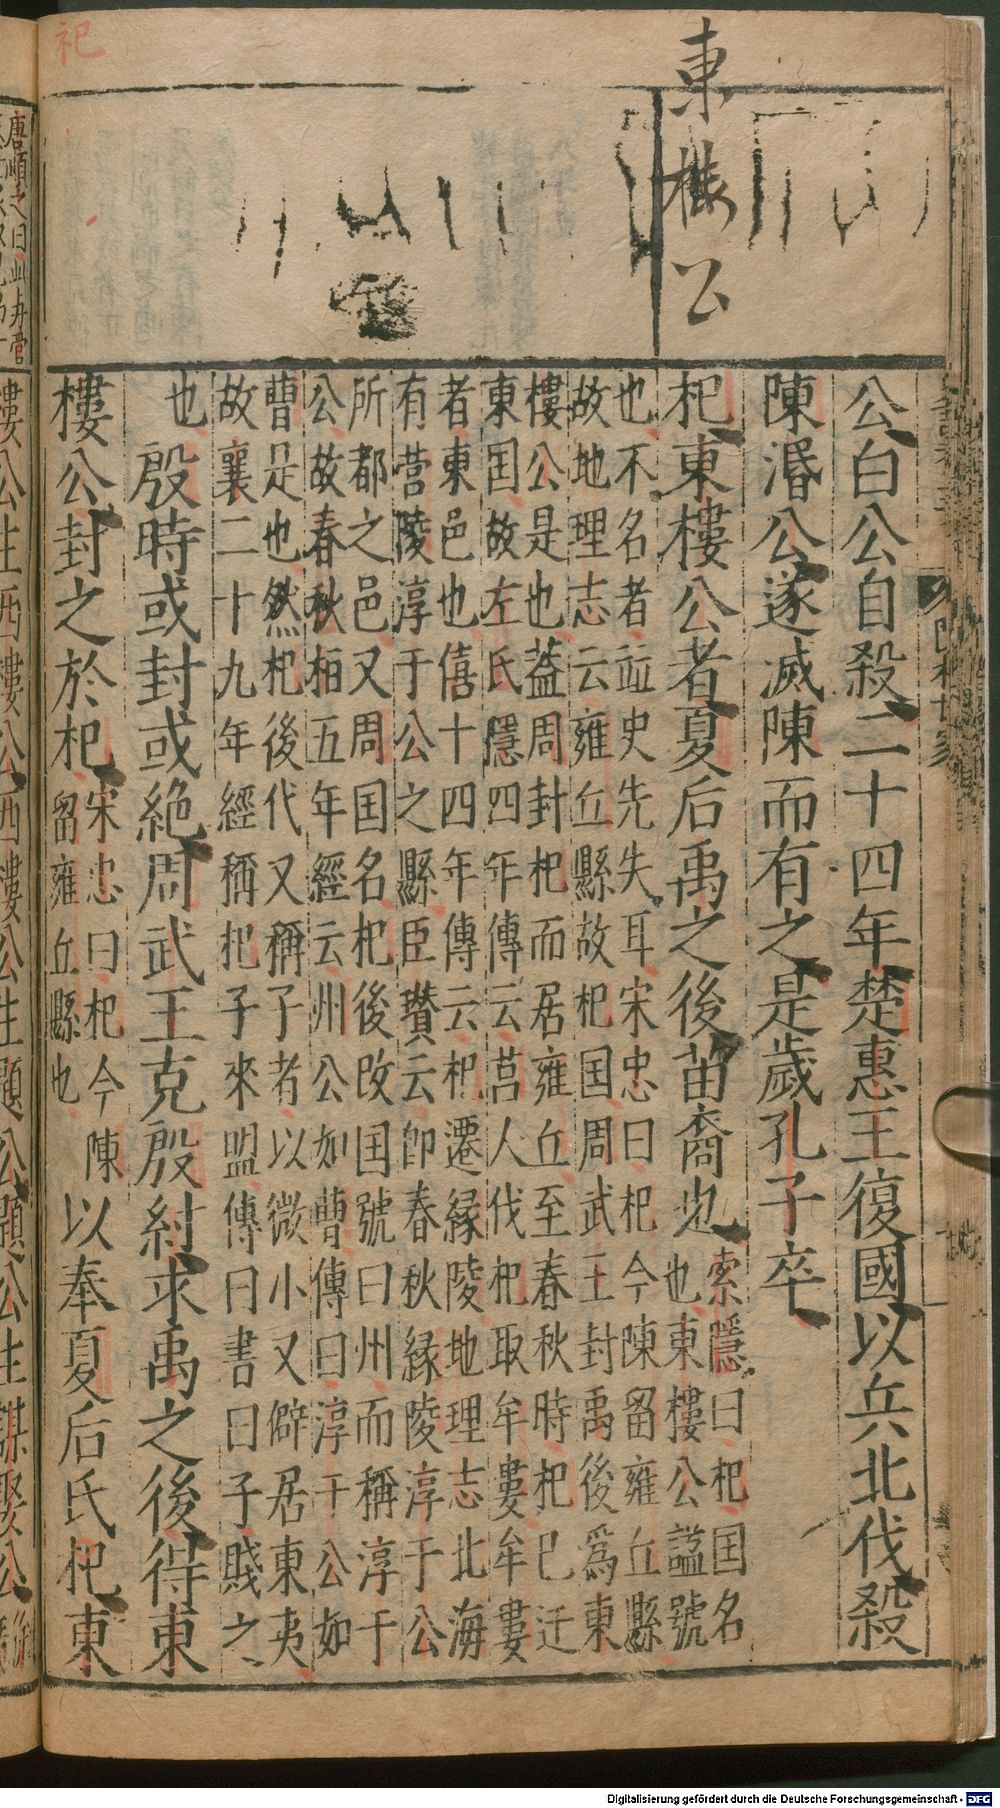 杞
東樓公
公白公自殺二十四年楚惠王復國以兵北伐殺
陳湣公遂滅陳而有之是歲孔子卒
杞東樓公者夏后禹之後苗裔也
索隱曰杞国名
也東樓公謚號
也不名者竝史先失耳宋忠曰杞今陳留雍丘縣
故地理志云雍丘縣故杞国周武王封禹後爲東
樓公是也蓋周封杞而居雍丘至春秋時杞已迁
東国故左氏隱四年傳云莒人伐杞取牟婁牟婁
者東邑也僖十四年傳云杞遷縁陵地理志北海
有营陵淳于公之縣臣瓉云即春秋縁陵淳于公
所都之邑又周国名杞後改国號曰州而稱淳于
公故春秋桓五年經云州公如曹傳曰淳于公如
曹是也然杞後代又稱子者以微小又僻居東夷
故襄二十九年經稱杞子來盟傳曰書曰子賤之
也
殷時或封或絶周武王克殷紂求禹之後得東
樓公封之於杞
宋忠曰杞今陳
留雍丘縣也
以奉夏后氏杞東
唐順之曰
樓公生西樓公西樓公生題公題公生謀娶公
Digitalisierung gefördert durch die Deutsche Forschungsgemeinschaft - DFG